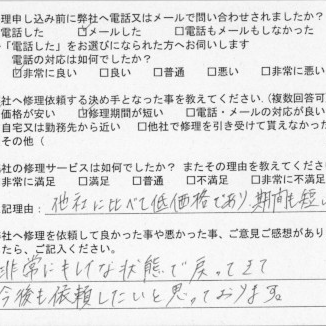 理申し込み前に弊社へ電話又はメールで問い合わせされましたか?
電話した □メールした □電話もメールもしなかった
「電話した」をお選びになられた方へお伺いします
電話の対応は如何でしたか?
☑非常に良い □良い □普通 □悪い □非常に悪い
社へ修理依頼する決め手となった事を教えてください。(複数回答可)
価格が安い ☑修理期間が短い □電話・メールの対応が良い
自宅又は勤務先から近い □他社で修理を引き受けて貰えなかった
その他(
社の修理サービスは如何でしたか? またその理由を教えてください
非常に満足 □満足 □普通 □不満足 □非常に不満
記理由: 他社に比べて低価格であり、期間も短い
社へ修理を依頼して良かった事や悪かった事、ご意見ご感想があり
たら、ご記入ください。
非常にキレイな状態で戻ってきて
今後も依頼したいと思っております。